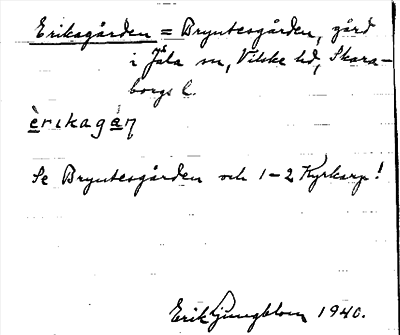 Eriksgården = Bryntesgården, gård
i Jäla sn, Vilske hd, Skara-
borgs l.
èrikagán
Se Bryntesgården och 1-2 Kyrkarp!
Erik Ljungblom 1940.